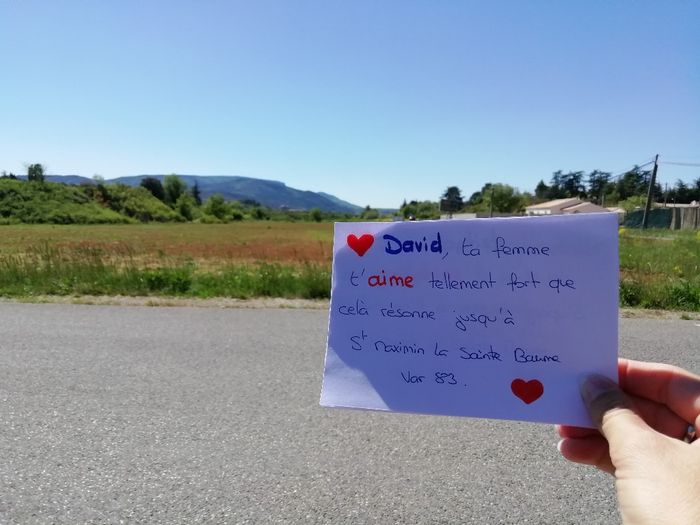 David, ta femme
t'aime tellement fort que
celà résonne jusqu'à
St Maximin la Sainte Baume
Var 83.